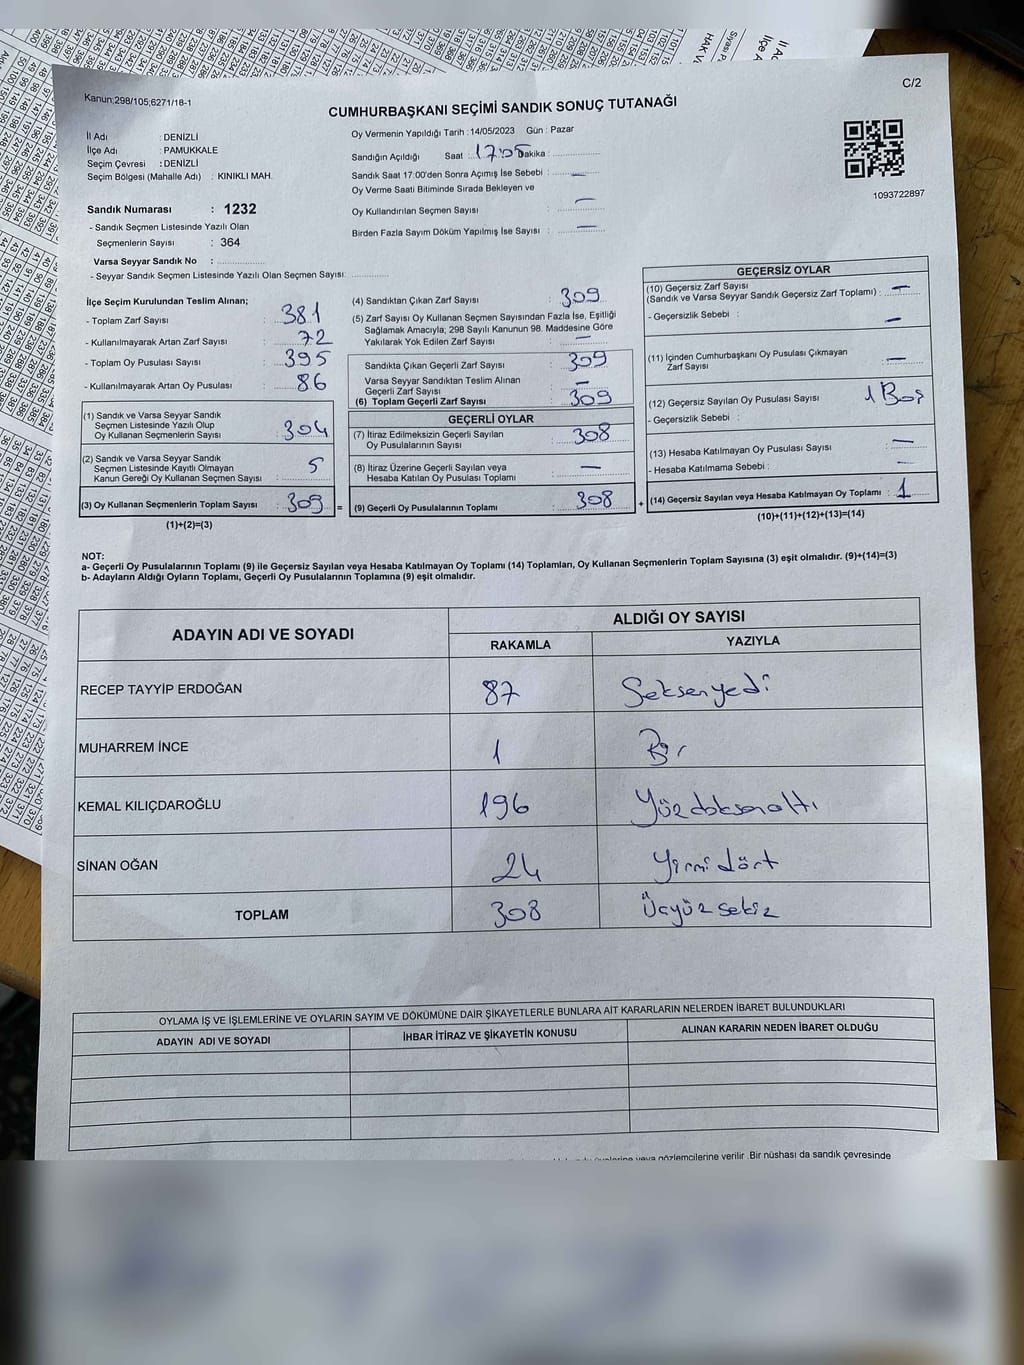 Kanun;298/105;6271/18-1
C/2
CUMHURBAŞKANI SEÇİMİ SANDIK SONUÇ TUTANAĞI
İl Adı : DENİZLİ
İlçe Adı : PAMUKKALE
Seçim Çevresi : DENİZLİ
Seçim Bölgesi (Mahalle Adı) : KINIKLI MAH.
Sandık Numarası : 1232
- Sandık Seçmen Listesinde Yazılı Olan
Seçmenlerin Sayısı : 364
Varsa Seyyar Sandık No :
- Seyyar Sandık Seçmen Listesinde Yazılı Olan Seçmen Sayısı:
Oy Vermenin Yapıldığı Tarih :14/05/2023 Gün : Pazar
Sandığın Açıldığı Saat : 17:05 Dakika :
Sandık Saat 17:00'den Sonra Açımış İse Sebebi : —
Oy Verme Saati Bitiminde Sırada Bekleyen ve
Oy Kullandırılan Seçmen Sayısı : —
Birden Fazla Sayım Döküm Yapılmış İse Sayısı : —
1093722897
İlçe Seçim Kurulundan Teslim Alınan;
- Toplam Zarf Sayısı : 381
- Kullanılmayarak Artan Zarf Sayısı : 72
- Toplam Oy Pusulası Sayısı : 395
- Kullanılmayarak Artan Oy Pusulası : 86
(1) Sandık ve Varsa Seyyar Sandık
Seçmen Listesinde Yazılı Olup
Oy Kullanan Seçmenlerin Sayısı : 304
(2) Sandık ve Varsa Seyyar Sandık
Seçmen Listesinde Kayıtlı Olmayan
Kanun Gereği Oy Kullanan Seçmen Sayısı : 5
(3) Oy Kullanan Seçmenlerin Toplam Sayısı : 309 =
(1)+(2)=(3)
(4) Sandıktan Çıkan Zarf Sayısı : 309
(5) Zarf Sayısı Oy Kullanan Seçmen Sayısından Fazla İse, Eşitliği
Sağlamak Amacıyla; 298 Sayılı Kanunun 98. Maddesine Göre
Yakılarak Yok Edilen Zarf Sayısı : —
Sandıkta Çıkan Geçerli Zarf Sayısı : 309
Varsa Seyyar Sandıktan Teslim Alınan
Geçerli Zarf Sayısı : —
(6) Toplam Geçerli Zarf Sayısı : 309
GEÇERLİ OYLAR
(7) İtiraz Edilmeksizin Geçerli Sayılan
Oy Pusulalarının Sayısı : 308
(8) İtiraz Üzerine Geçerli Sayılan veya
Hesaba Katılan Oy Pusulası Toplamı : —
(9) Geçerli Oy Pusulalarının Toplamı : 308 +
GEÇERSİZ OYLAR
(10) Geçersiz Zarf Sayısı
(Sandık ve Varsa Seyyar Sandık Geçersiz Zarf Toplamı) : —
- Geçersizlik Sebebi : —
(11) İçinden Cumhurbaşkanı Oy Pusulası Çıkmayan
Zarf Sayısı : —
(12) Geçersiz Sayılan Oy Pusulası Sayısı : 1 Boş
- Geçersizlik Sebebi :
(13) Hesaba Katılmayan Oy Pusulası Sayısı : —
- Hesaba Katılmama Sebebi : —
(14) Geçersiz Sayılan veya Hesaba Katılmayan Oy Toplamı : 1
(10)+(11)+(12)+(13)=(14)
NOT:
a- Geçerli Oy Pusulalarının Toplamı (9) ile Geçersiz Sayılan veya Hesaba Katılmayan Oy Toplamı (14) Toplamları, Oy Kullanan Seçmenlerin Toplam Sayısına (3) eşit olmalıdır. (9)+(14)=(3)
b- Adayların Aldığı Oyların Toplamı, Geçerli Oy Pusulalarının Toplamına (9) eşit olmalıdır.
ADAYIN ADI VE SOYADI
ALDIĞI OY SAYISI
RAKAMLA YAZIYLA
RECEP TAYYİP ERDOĞAN 87 Seksenyedi
MUHARREM İNCE 1 Bir
KEMAL KILIÇDAROĞLU 196 Yüzdoksanaltı
SİNAN OĞAN 24 Yirmidört
TOPLAM 308 Üçyüzsekiz
OYLAMA İŞ VE İŞLEMLERİNE VE OYLARIN SAYIM VE DÖKÜMÜNE DAİR ŞİKAYETLERLE BUNLARA AİT KARARLARIN NELERDEN İBARET BULUNDUKLARI
ADAYIN ADI VE SOYADI İHBAR İTİRAZ VE ŞİKAYETİN KONUSU ALINAN KARARIN NEDEN İBARET OLDUĞU
veya gözlemcilerine verilir .Bir nüshası da sandık çevresinde